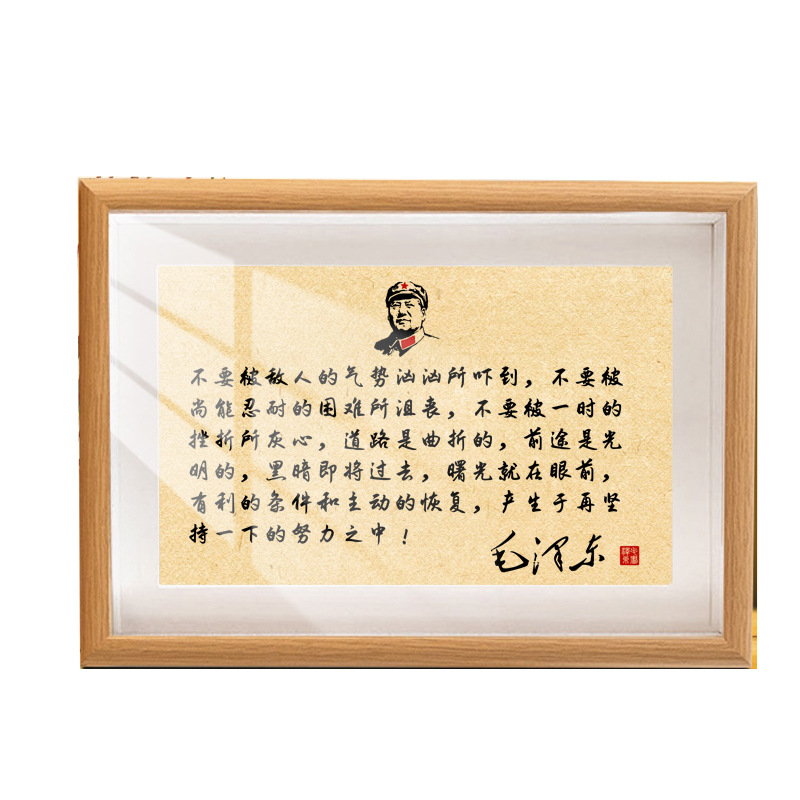 不要被敌人的气势汹汹所吓到，不要被
尚能忍耐的困难所沮丧，不要被一时的
挫折所灰心，道路是曲折的，前途是光
明的，黑暗即将过去，曙光就在眼前，
有利的条件和主动的恢复，产生于再坚
持一下的努力之中！
毛泽东